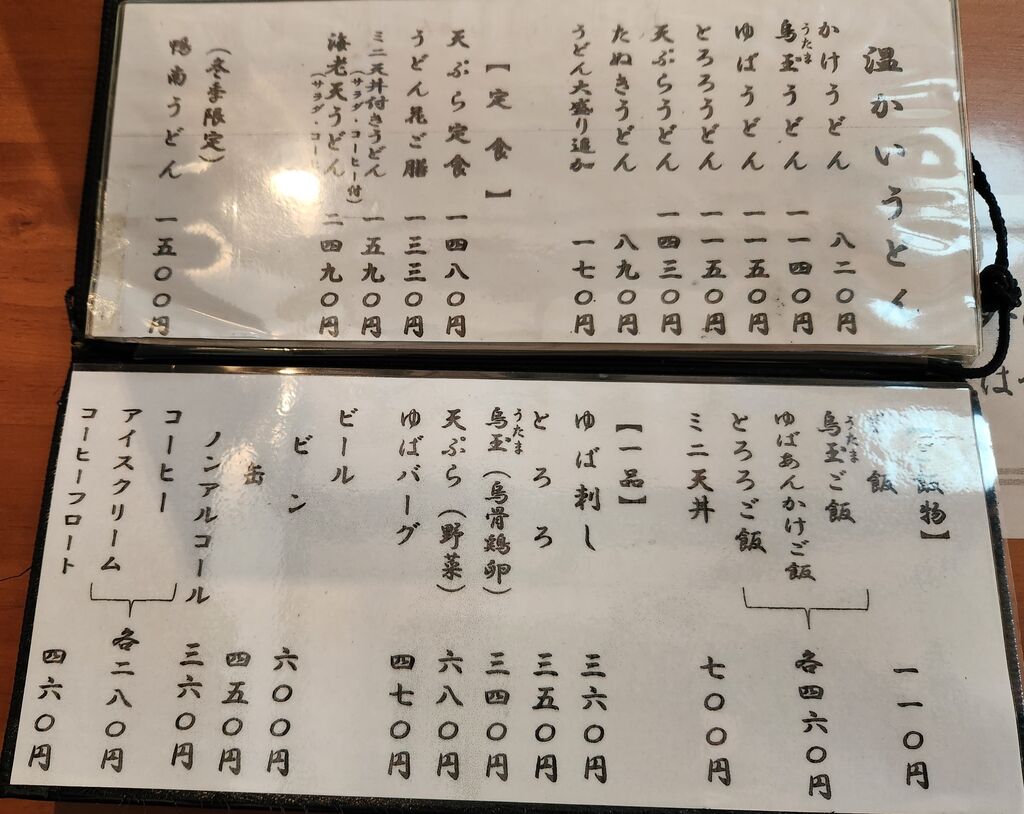 温かいうどん
かけうどん 八二〇円
うたま
烏玉うどん 一一四〇円
ゆばうどん 一一五〇円
とろろうどん 一一五〇円
天ぷらうどん 一四三〇円
たぬきうどん 八九〇円
うどん大盛り追加 一七〇円
【定食】
天ぷら定食 一四八〇円
うどん花ご膳 一三三〇円
ミニ天丼付きうどん 一五九〇円
(サラダ・コーヒー付)
海老天うどん 二四九〇円
(サラダ・コー
(冬季限定)
鴨南うどん 一五〇〇円
飯物】
飯 一一〇円
うたま
烏玉ご飯
ゆばあんかけご飯
とろろご飯
各四六〇円
ミニ天丼 七〇〇円
【一品】
ゆば刺し 三六〇円
とろろ 三五〇円
うたま
烏玉(烏骨鶏卵) 三四〇円
天ぷら(野菜) 六八〇円
ゆばバーグ 四七〇円
ビール
ビン 六〇〇円
缶 四五〇円
ノンアルコール 三六〇円
コーヒー
アイスクリーム
各二八〇円
コーヒーフロート 四六〇円